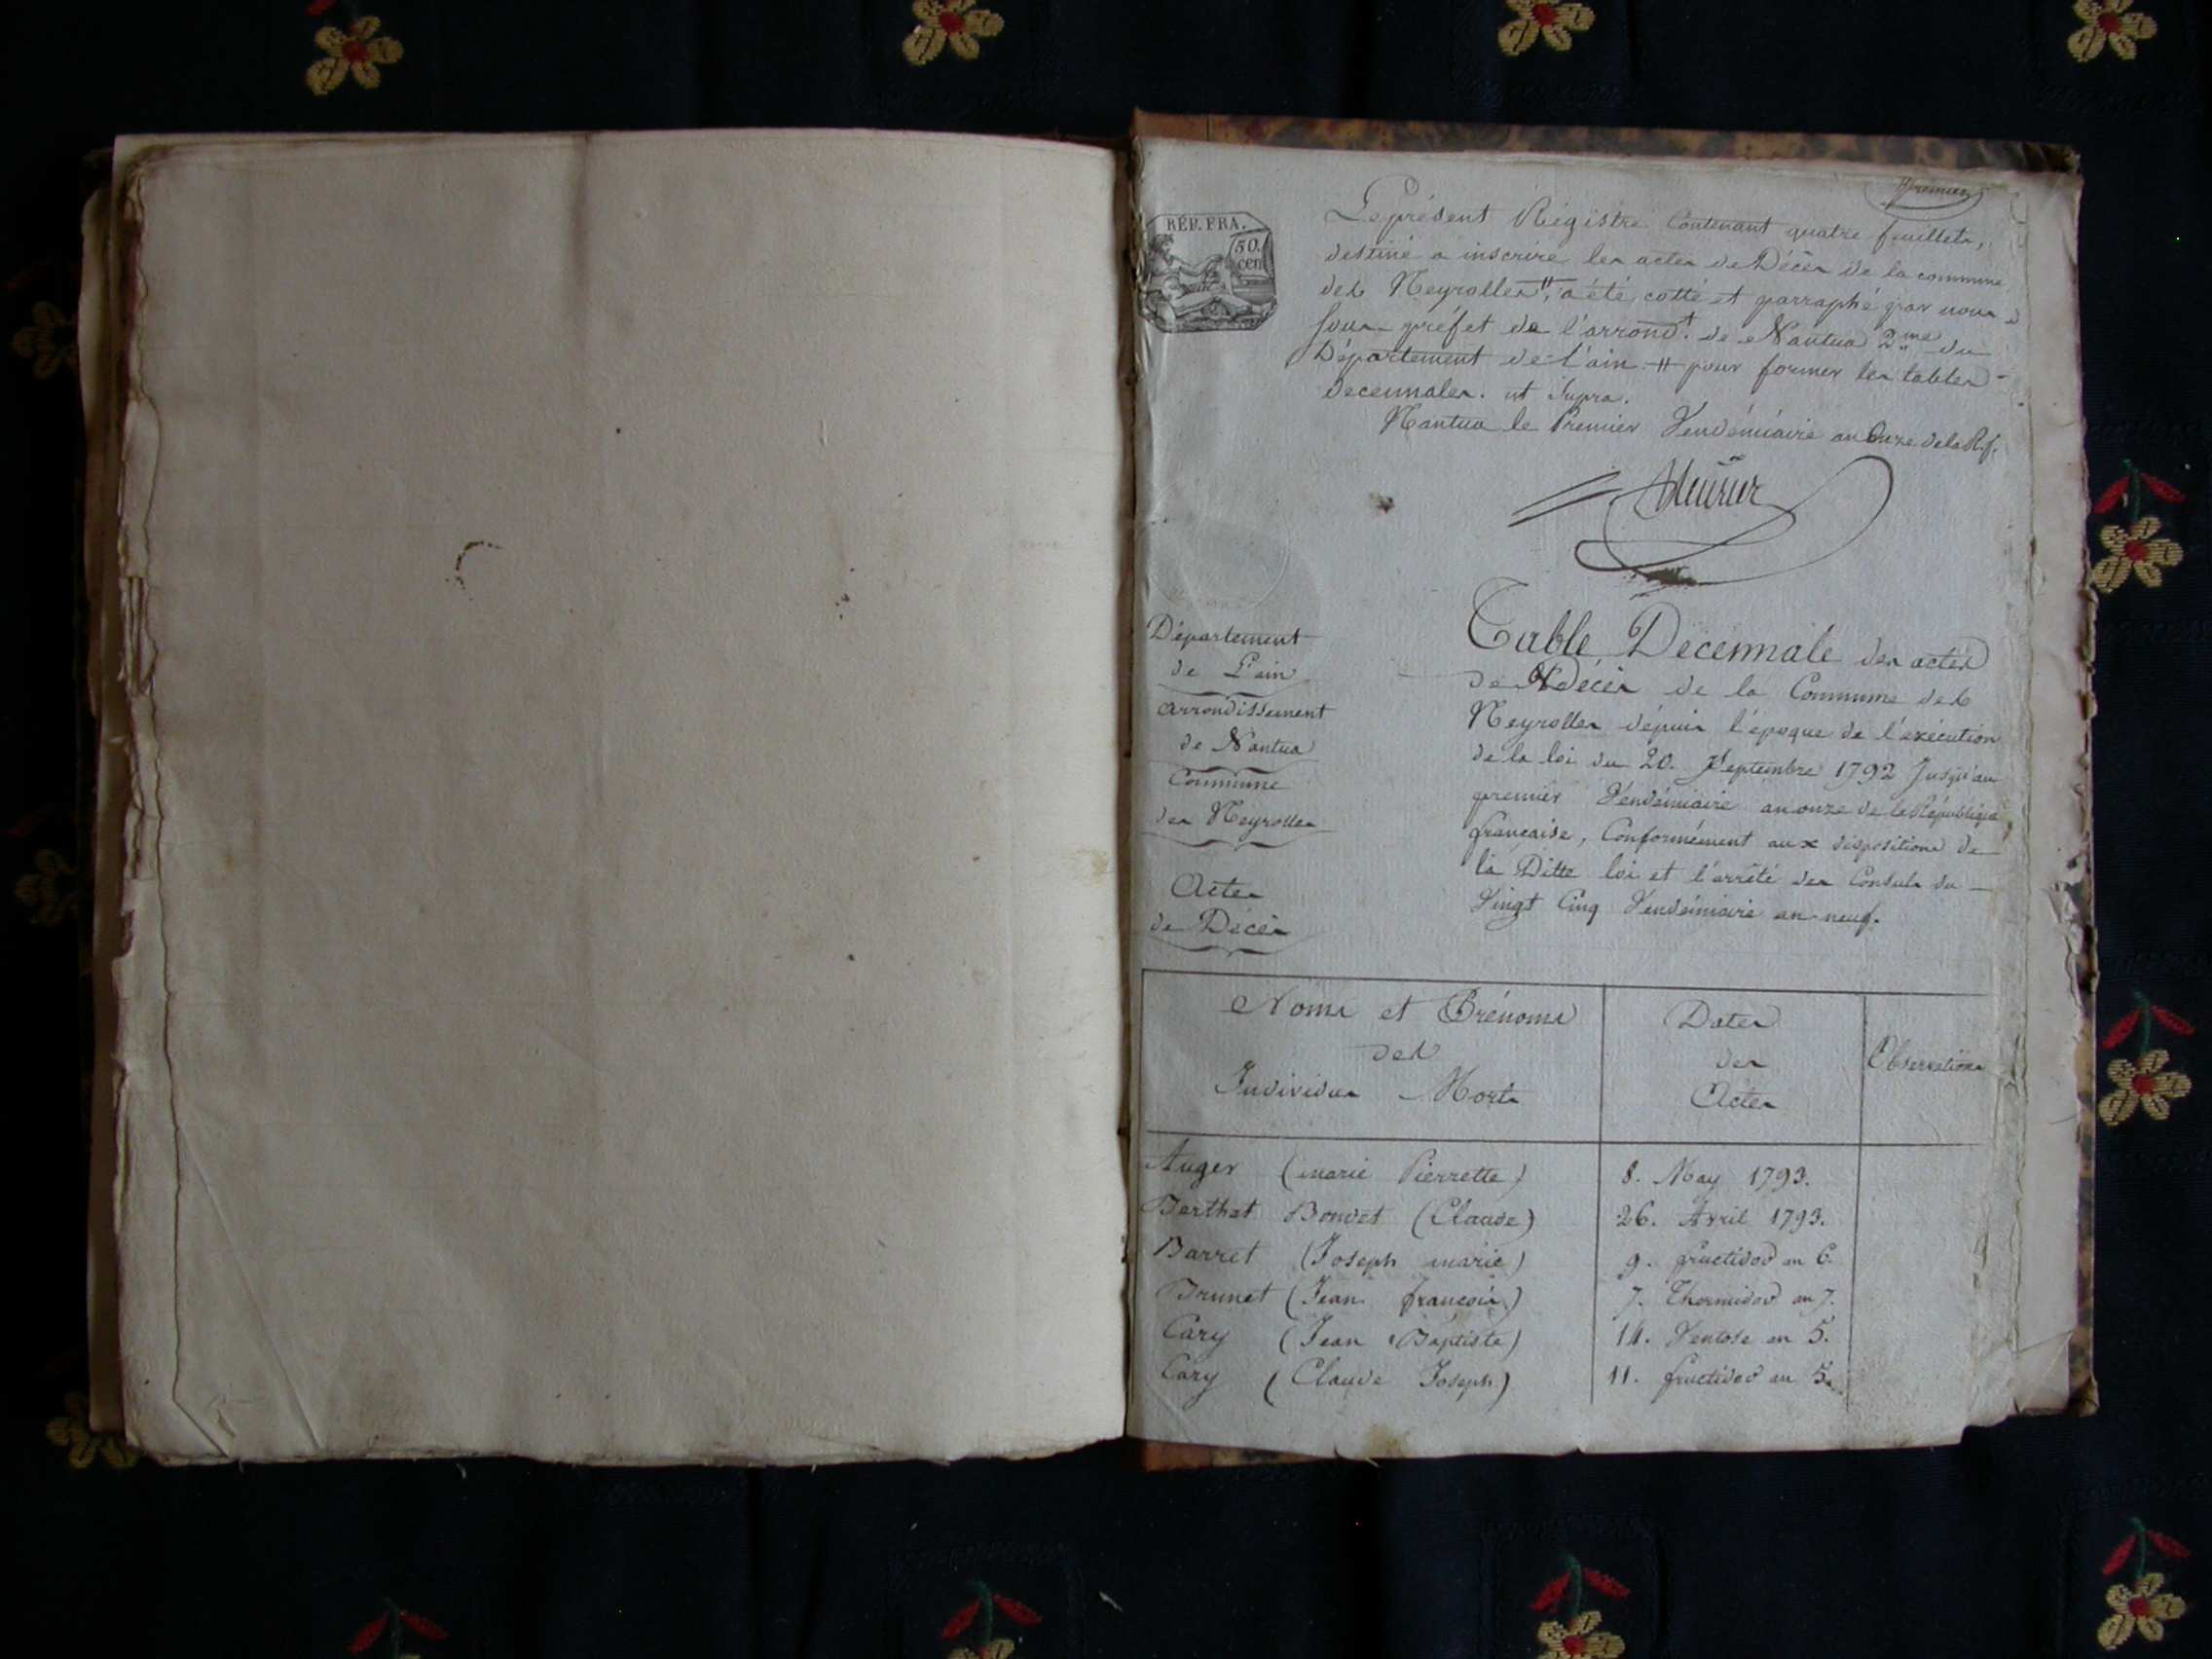 premier
RÉP. FRA.
50.
cen
Le présent Régistre Contenant quatre feuillets,
destiné a inscrire les actes de Décès de la commune
des Neyrolles #, a été cotté et parraphé par nous
sous-préfet de l'arrond.t de Nantua 2.me du
Département de l'ain # pour former les tables
decennales. ut supra.
Nantua le Premier Vendémiaire an Onze de la R.f.
Département
de L'ain
arrondissement
de Nantua
Commune
des Neyrolles
Actes
de Décès
Table Décennale des actes
de Décès de la Commune des
Neyrolles dépuis l'époque de l'éxécution
de la loi du 20. Septembre 1792 Jusqu'au
premier Vendémiaire an onze de la République
française, Conformément aux dispositions de
la Ditte loi et l'arrêté des Consuls du
Vingt Cinq Vendémiaire an neuf.
Noms et Prénoms
des
Individus Morts
Dates
des
Actes
Observations
Auger (marie Pierrette) 8. May 1793.
Berthet Bondet (Claude) 26. Avril 1793.
Barret (Joseph marie) 9. fructidor an 6.
Brunet (Jean françois) 7. Thermidor an 7.
Cary (Jean Baptiste) 14. Ventose an 5.
Cary (Claude Joseph) 11. fructidor an 5.